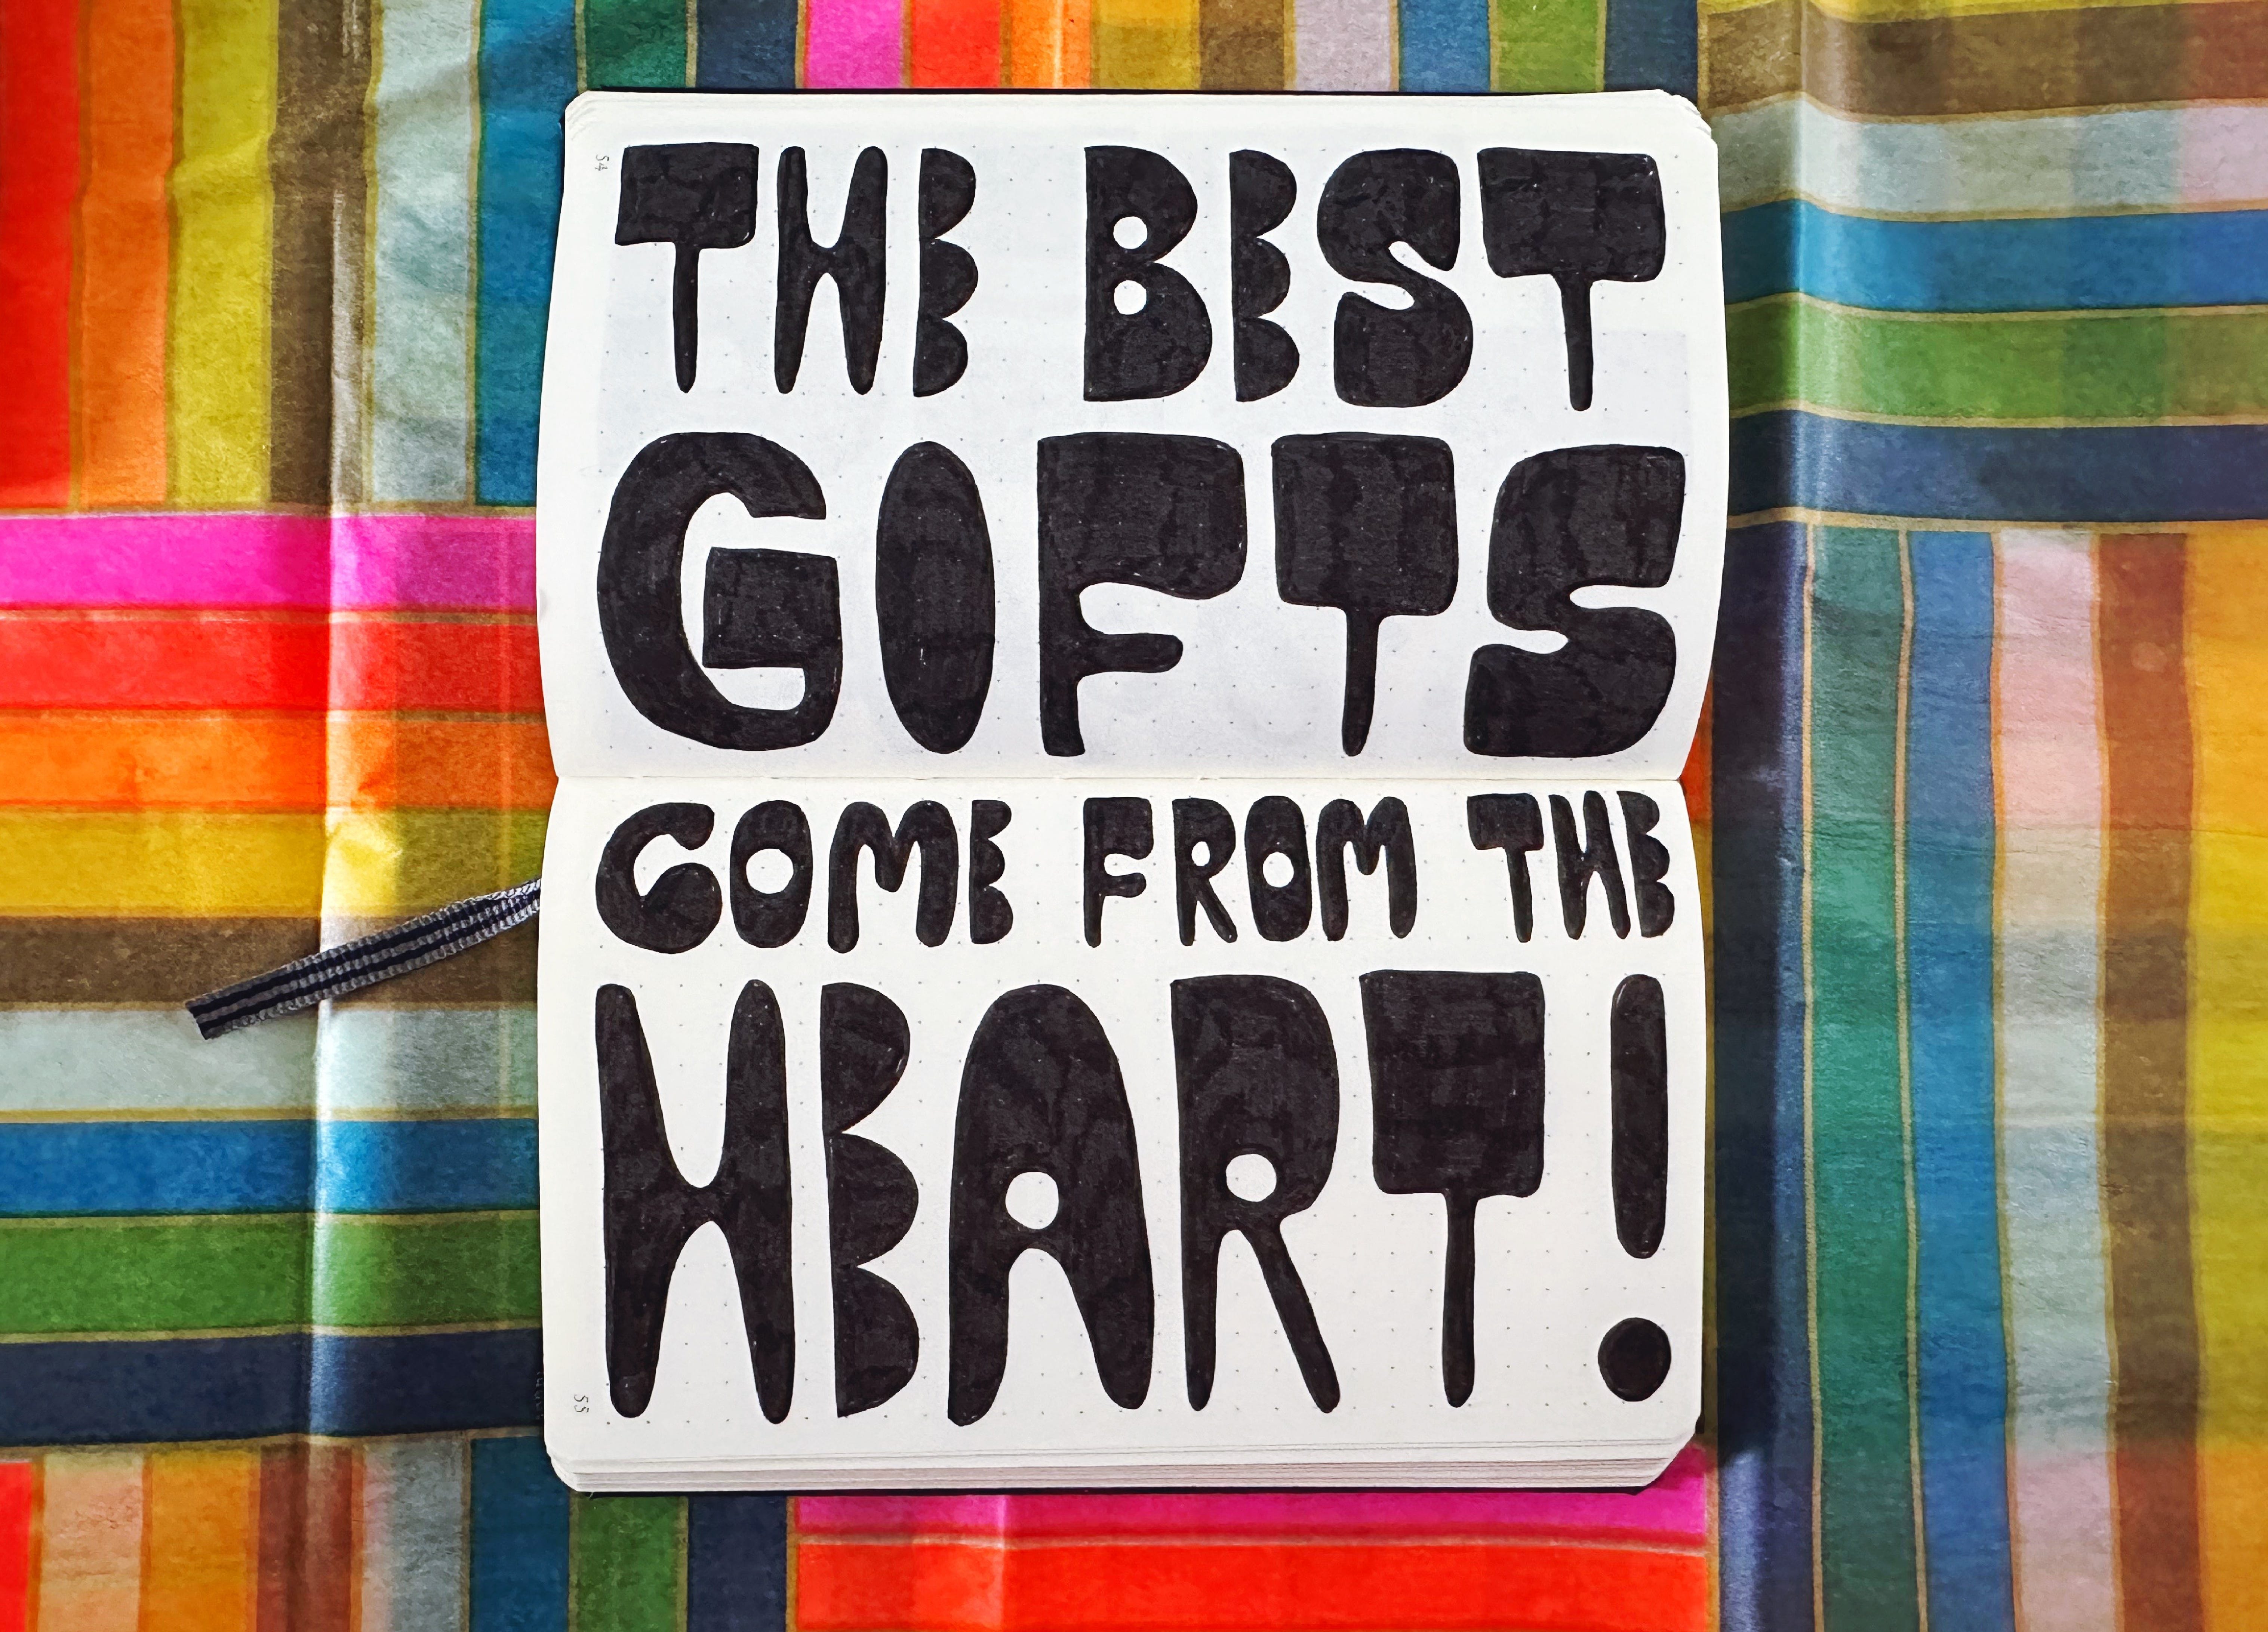 54
THE BEST
GIFTS
COME FROM THE
HEART!
55